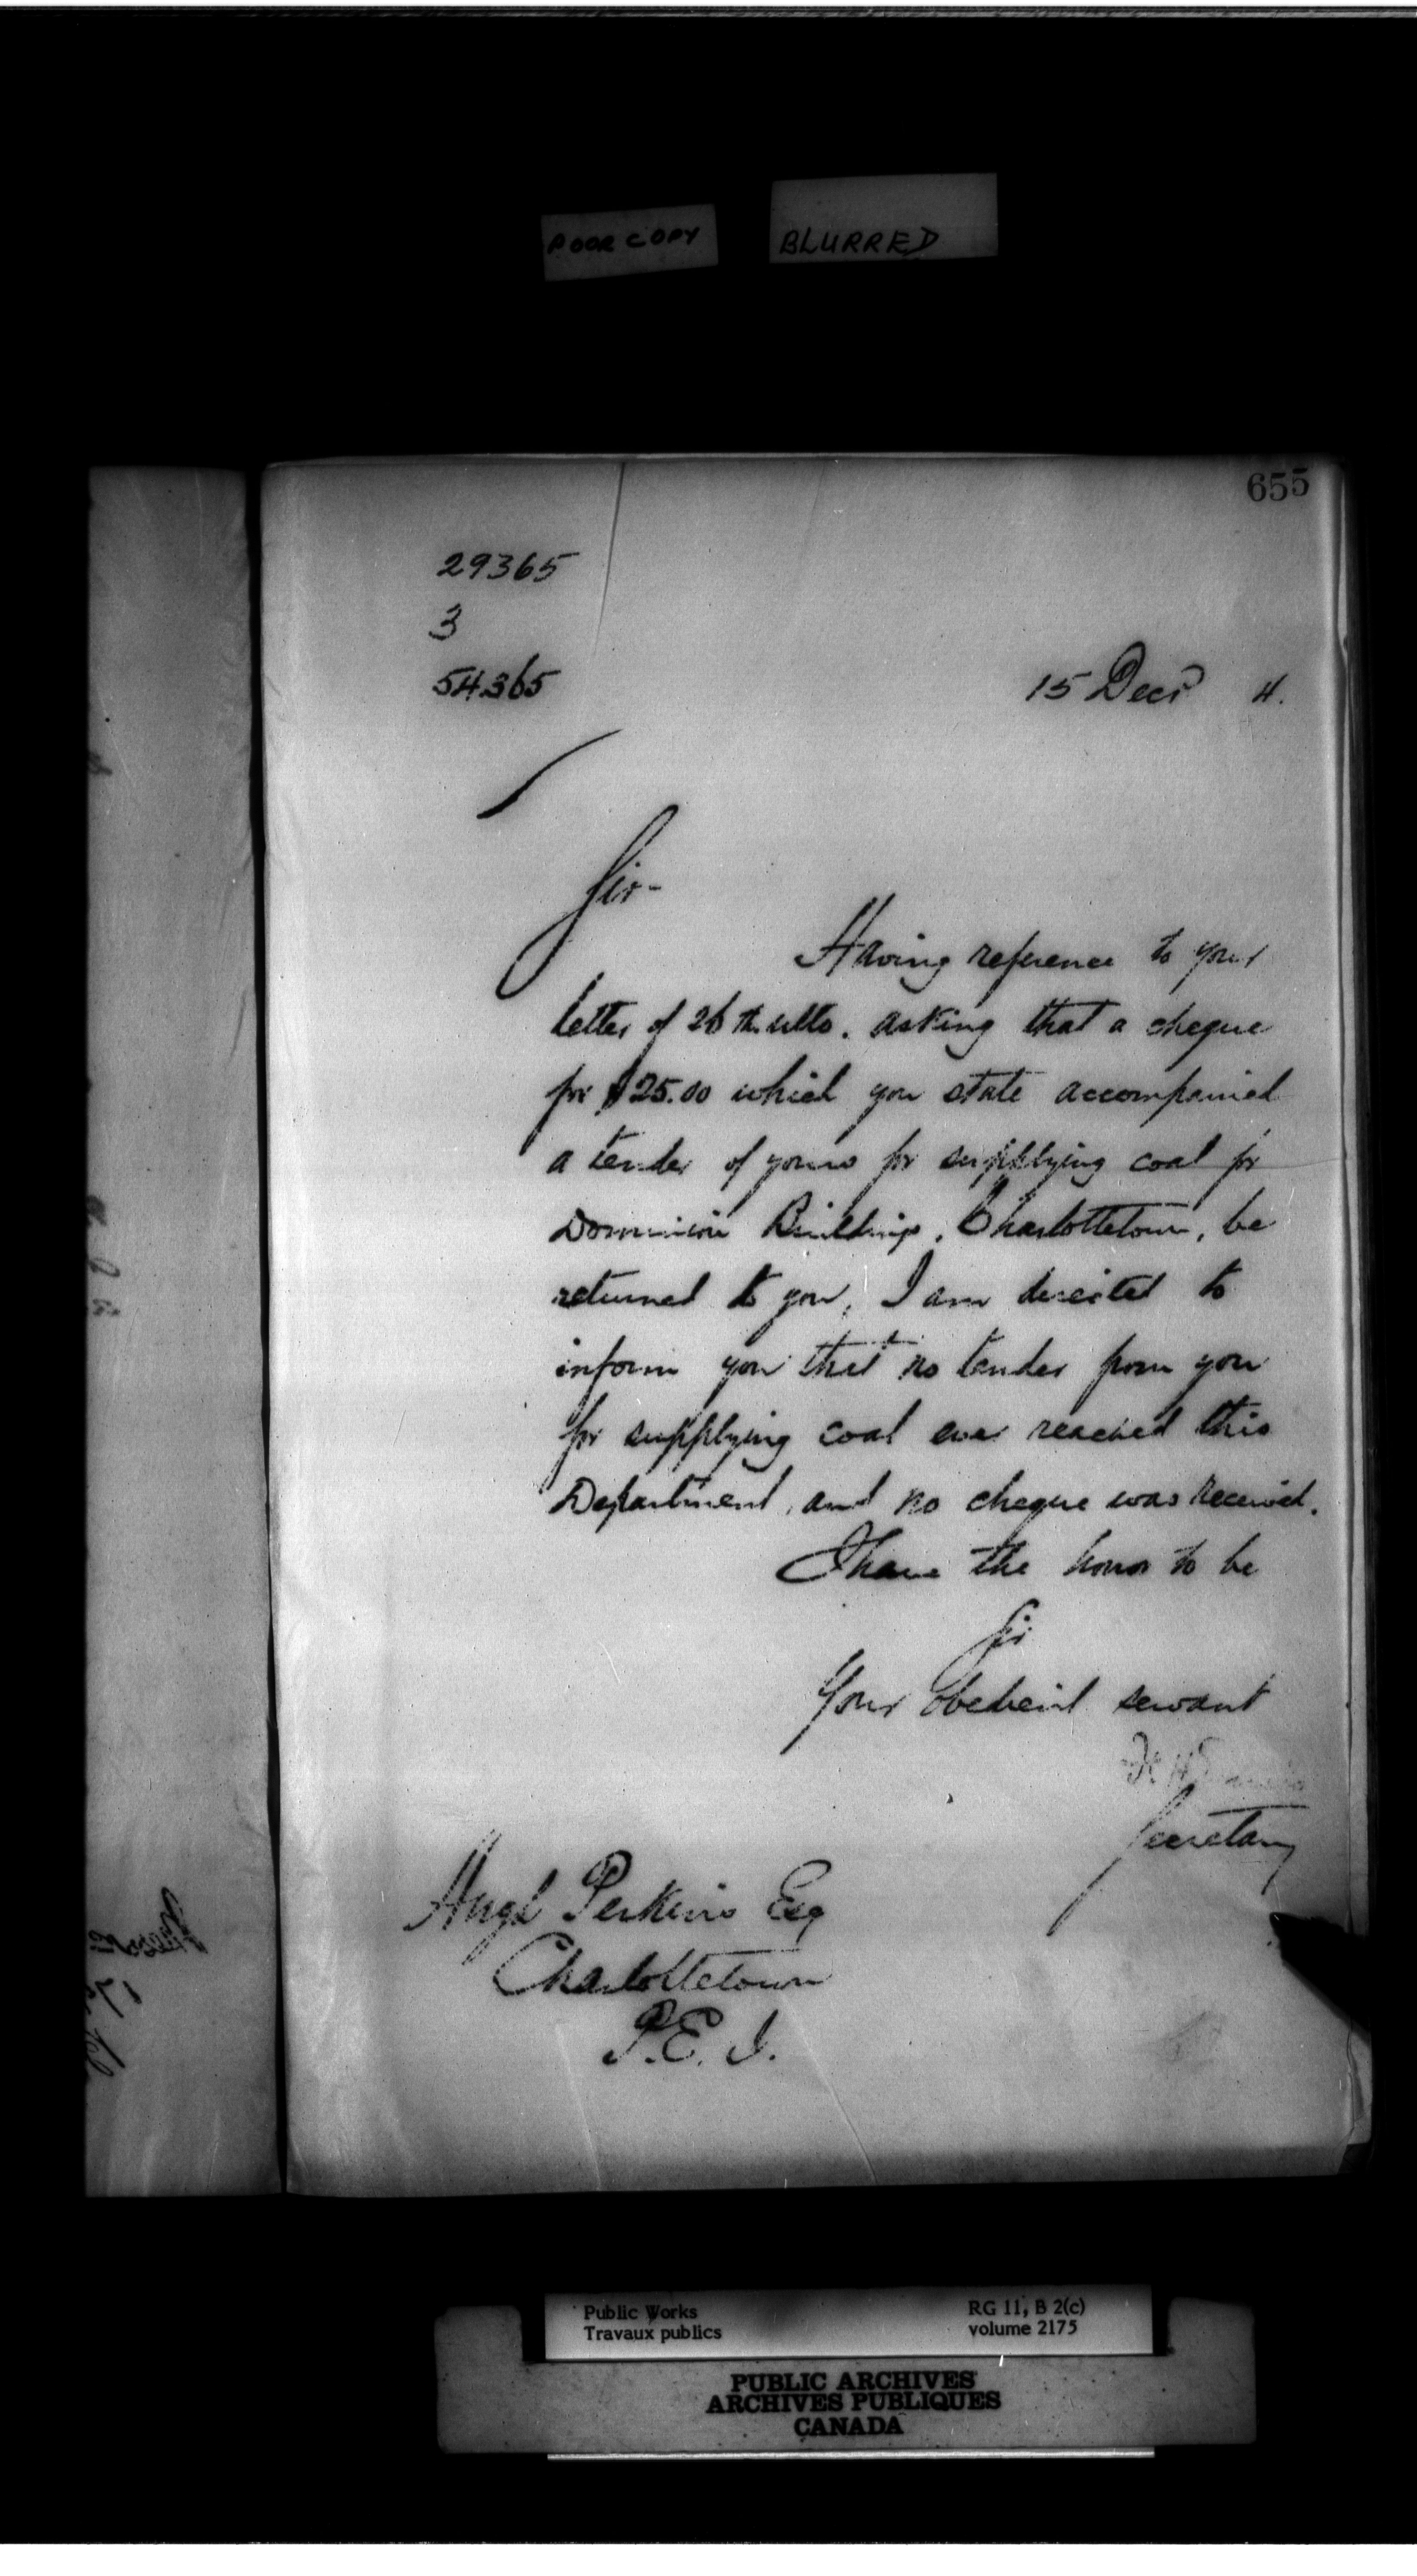 POOR COPY
BLURRED
655
29365
3
54365
15 Decr 4.
Sir-
Having reference to your
letter of 26th ulto. asking that a cheque
for $25.00 which you state accompanied
a tender of yours for supplying coal for
Dominion Buildings, Charlottetown, be
returned to you, I am directed to
inform you that no tender from you
for supplying coal ever reached this
Department, and no cheque was received.
I have the honor to be
Sir
Your obedient servant
Secretary
Hugh Perkins Esq
Charlottetown
P.E.I.
Public Works
Travaux publics
RG 11, B 2(c)
volume 2175
PUBLIC ARCHIVES
ARCHIVES PUBLIQUES
CANADA